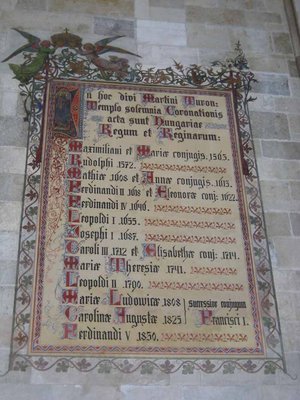 In hoc divi Martini Turon:
Templo solemnia Coronationis
acta sunt Hungariae
Regum et Reginarum:
Maximiliani et Mariae conjugis. 1563.
Rudolphi 1572.
Mathiae 1608 et Annae conjugis. 1613.
Ferdinandi II 1618 et Eleonorae conj: 1622.
Ferdinandi IV 1646.
Leopoldi I. 1655.
Josephi I 1687.
Caroli III. 1712 et Elisabethae conj: 1714.
Mariae Theresiae 1741.
Leopoldi II 1790.
Mariae Ludovicae 1808 successive conjugum
Carolinae Augustae 1825 Francisci I.
Ferdinandi V 1830.